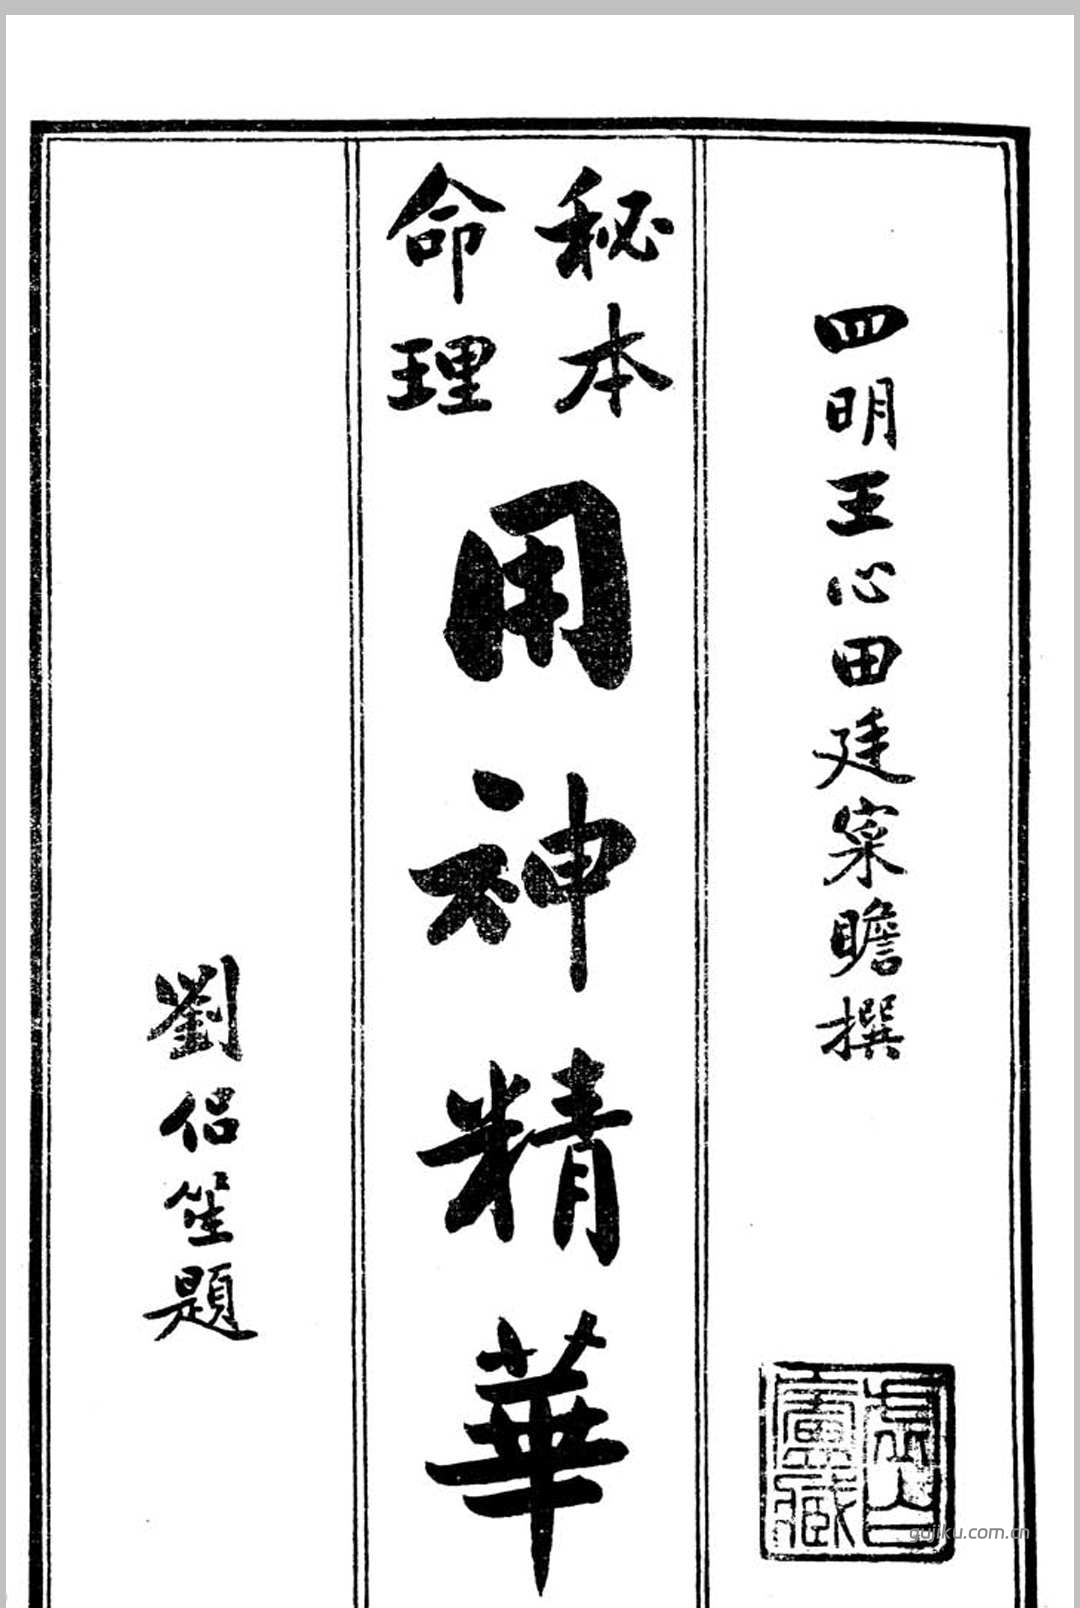 四明王心田廷寀瞻撰
秘本
命理
用神精華
劉侶笙題
gujiku.com.cn